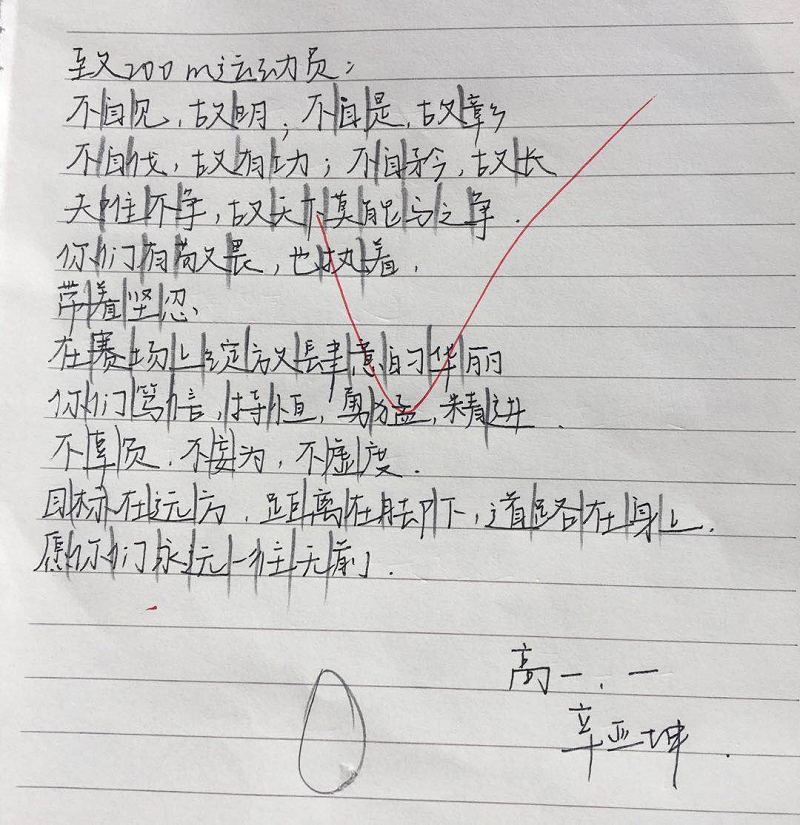 致200m运动员:
不自见,故明;不自是,故彰
不自伐,故有功;不自矜,故长
夫惟不争,故天下莫能与之争.
你们有敬畏,也执着,
带着坚忍、
在赛场上绽放肆意的华丽
你们笃信,持恒,勇猛,精进.
不辜负,不妄为,不虚度.
目标在远方,距离在脚下,道路在身上.
愿你们永远一往无前.
高一.一
辛亚坤.